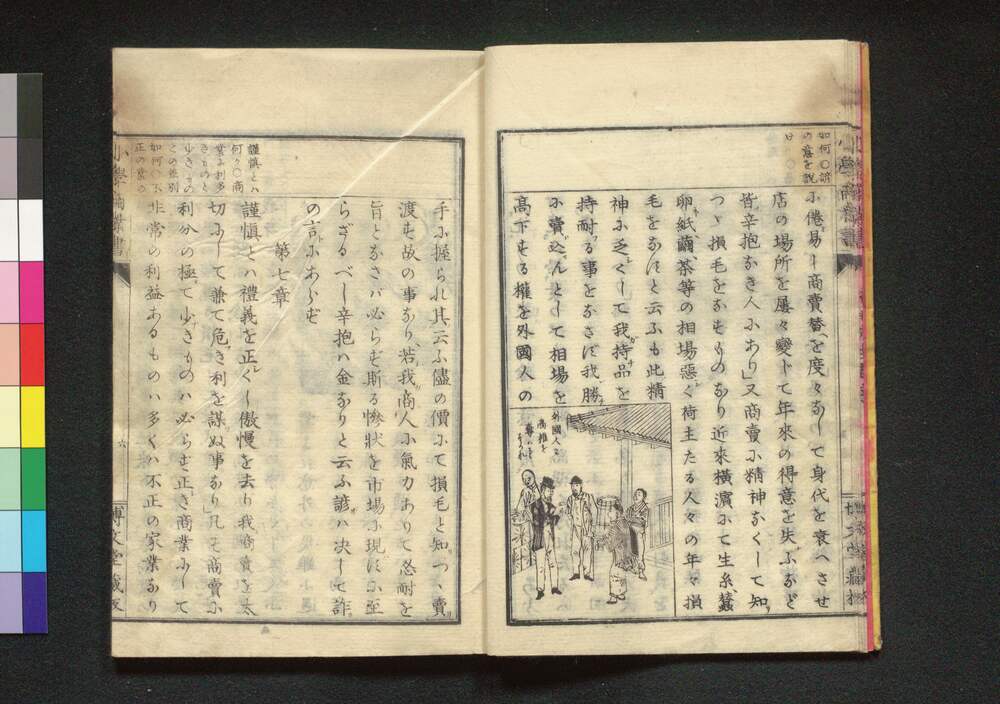 如何○諺
の意を説
け
小倦易し商賣替を度々なして身代を衰へさせ
店の場所を屢々變じて年來の得意を失ふなど
皆辛抱なき人にあり」又商賣に精神なくして知
つゝ損毛をなすものあり近來横濱にて生糸蠶
卵紙繭茶等の相場惡く荷主たる人々の年々損
毛をなすと云ふも此精
神に乏くして我持品を
持耐る事をなさず我勝
に賣込んとして相場を
高下する權を外國人の
外國人に
手に握られ其云ふ儘の價にて損毛と知つゝ賣
渡す故の事なり若我商人に氣力ありて忍耐を
旨となさバ必らず斯る慘狀を市場に現ずに至
らざるべし辛抱ハ金なりと云ふ諺ハ决して詐
の言にあらず
第七章
謹愼とハ禮義を正くし傲慢を去り我商賣を太
切にして兼て危き利を謀ぬ事なり」凡そ商賣に
利分の極て少きものハ必らず正き商業にして
非常の利益あるものハ多くハ不正の家業なり
謹愼とハ
何ぞ○商
業に利多
きものと
少きもの
との差別
如何○不
正の業の
六
博文堂藏版